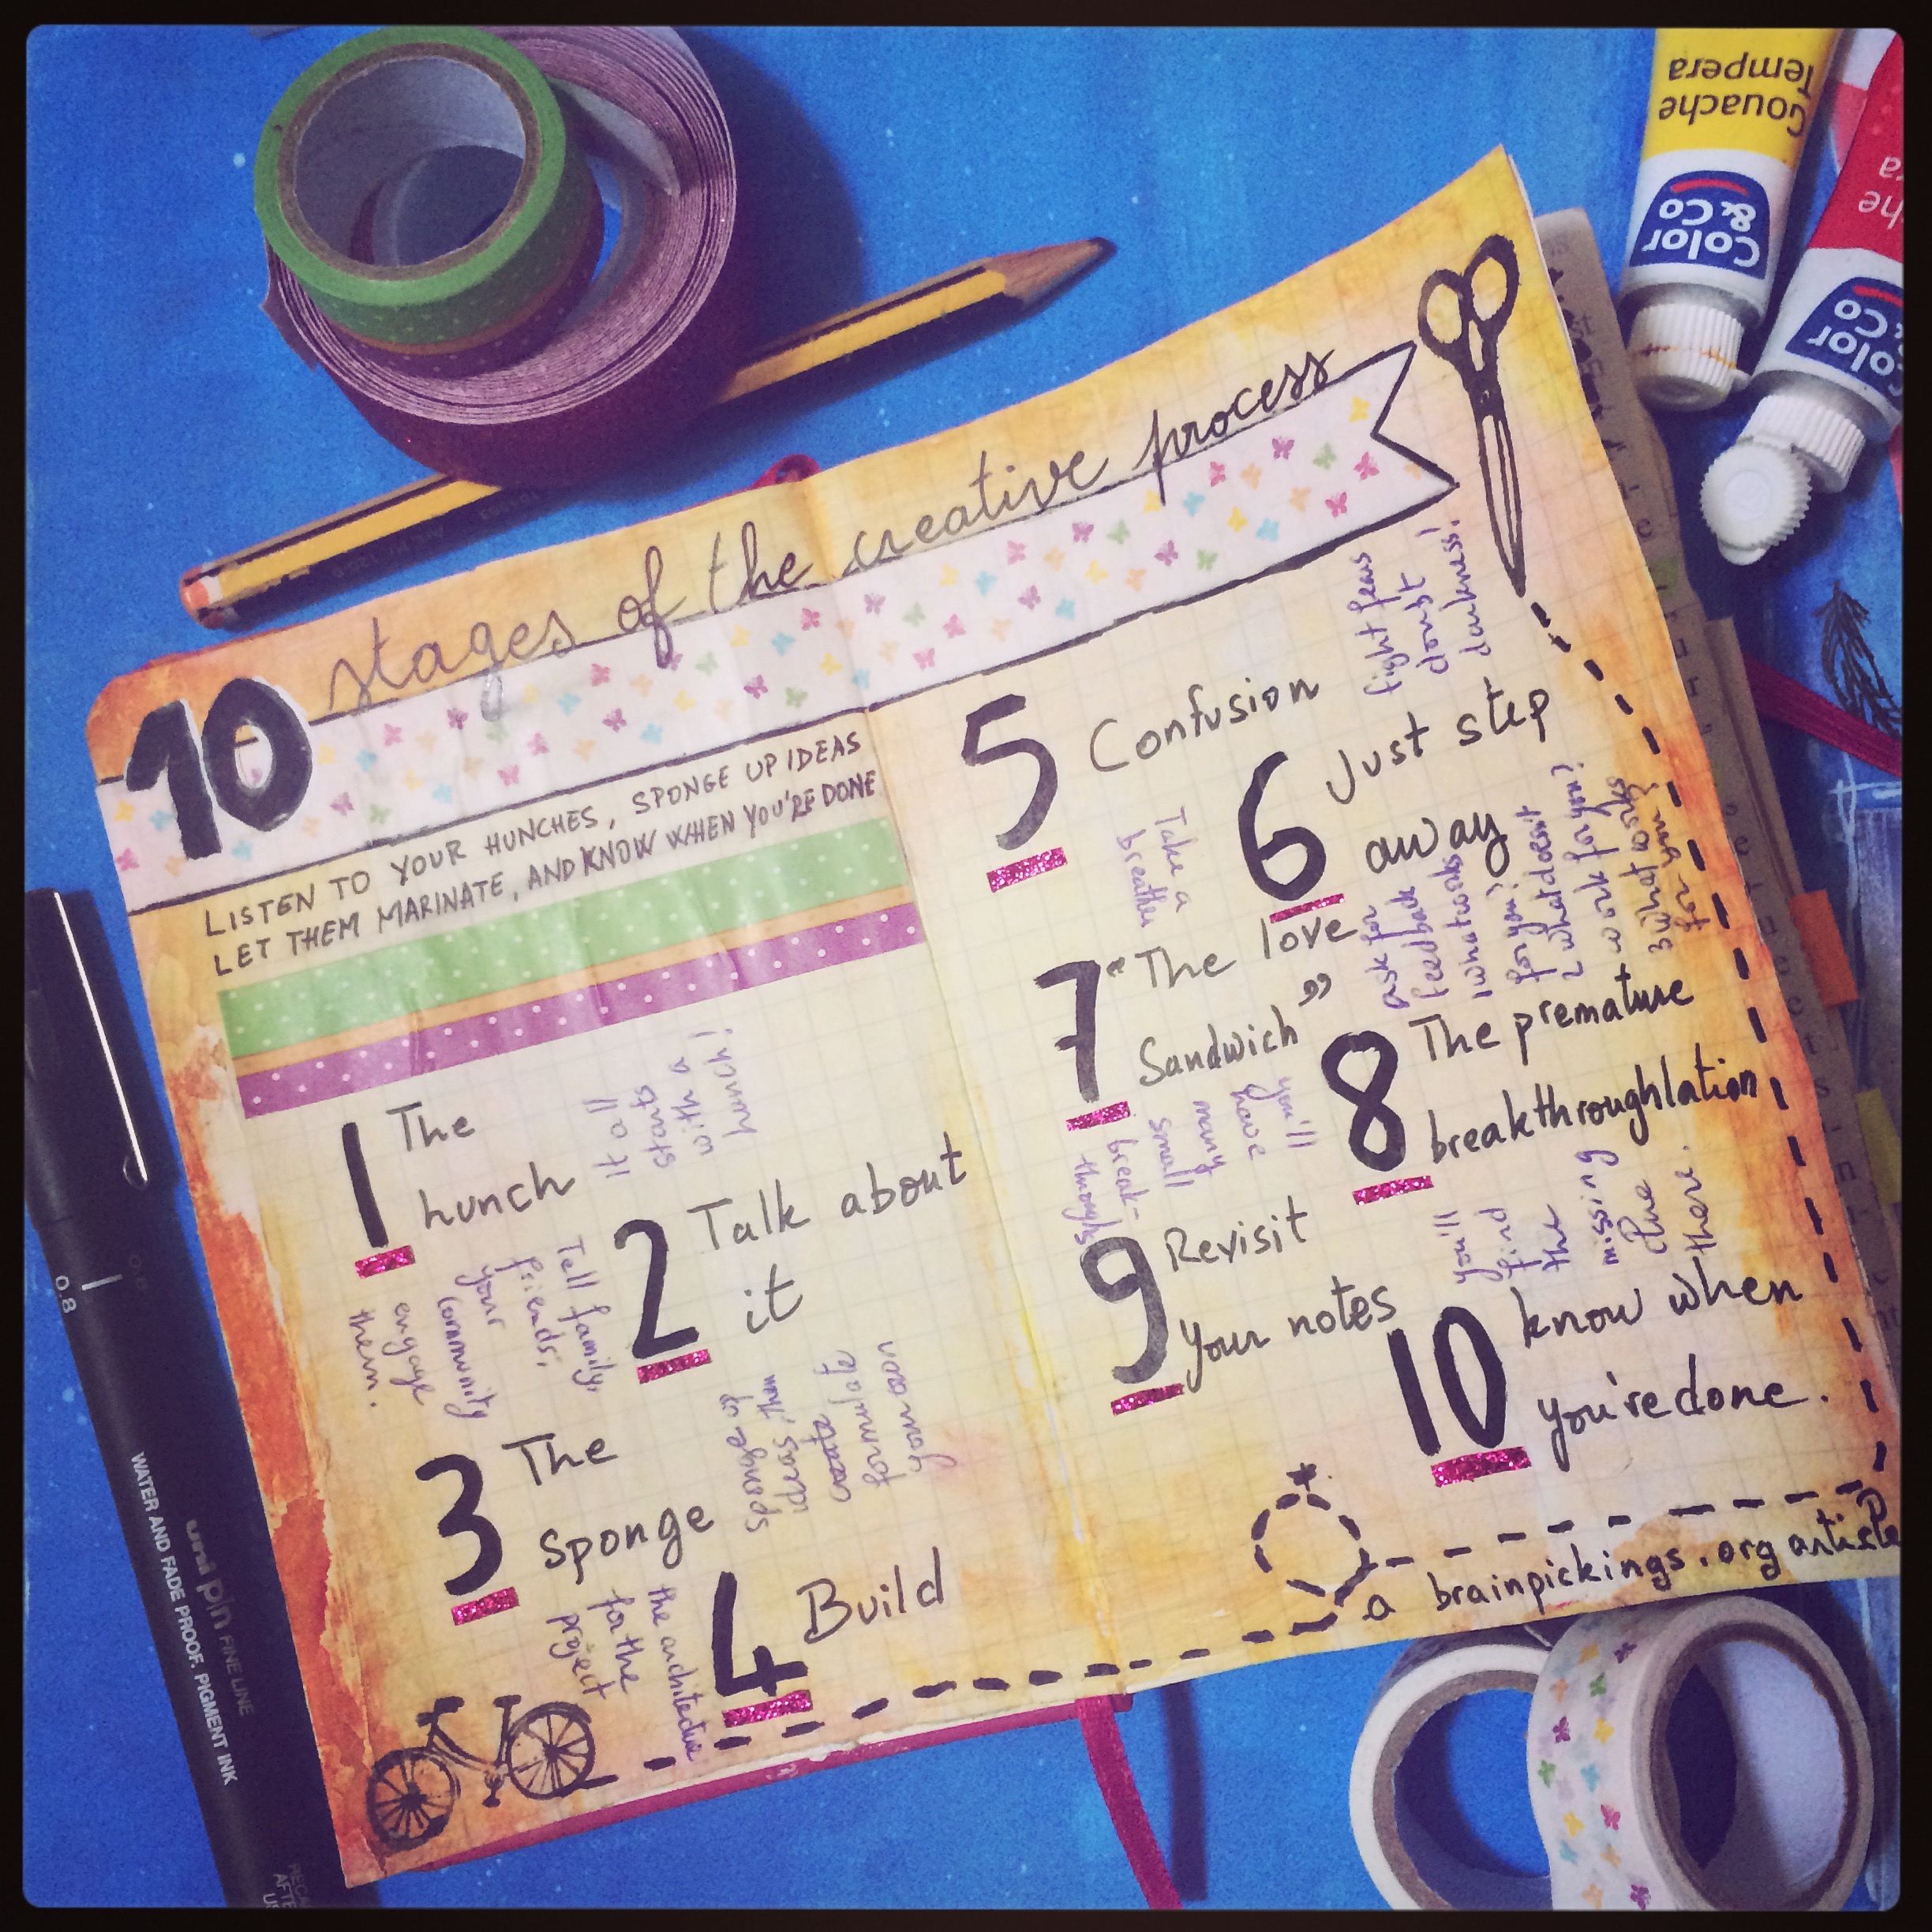 10 stages of the creative process
LISTEN TO YOUR HUNCHES, SPONGE UP IDEAS
LET THEM MARINATE, AND KNOW WHEN YOU'RE DONE
1 The
hunch
It all
starts
with a
hunch!
2 Talk about
it
Tell family,
friends,
your
community
engage
them.
3 The
sponge
sponge up
ideas, then
create
formulate
your own
4 Build
the architecture
for the
project
5 Confusion
fight fears
doubt
darkness!
6 Just step
away
Take a
breather
7 "The love
Sandwich"
ask for
feedback
1 what works
for you?
2 what doesn't
work for you?
3 what works
for you?
8 The premature
breakthroughlation
you'll
have
many
small
break-
throughs
9 Revisit
your notes
you'll
find
the
missing
clue
there.
10 know when
you're done.
a brainpickings.org article
Gouache
Tempera
Color
& Co
Color
& Co
0.8
uni pin FINE LINE
WATER AND FADE PROOF, PIGMENT INK